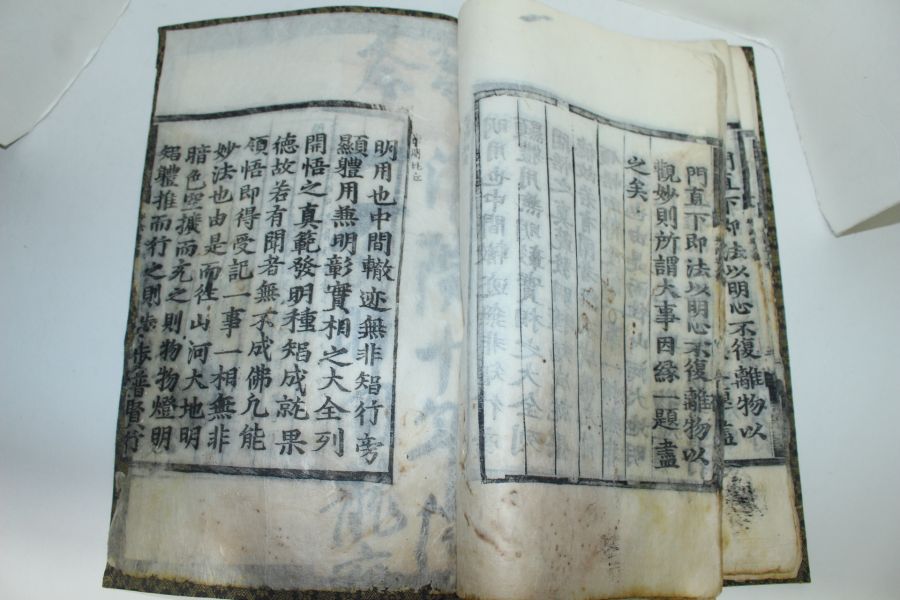 門直下即法以明心不復離物以
門直下即法以明心不復離物以
觀妙則所謂大事因緣一題盡
之矣
明用也中間轍迹無非智行旁
顯體用無明彰實相之大全列
開悟之真範發明種智成就果
德故若有聞者無不成佛凢能
領悟即得受記一事一相無非
妙法也由是而徃山河大地明
暗色空擴而充之則物物燈明
智體推而行之則步步普賢行